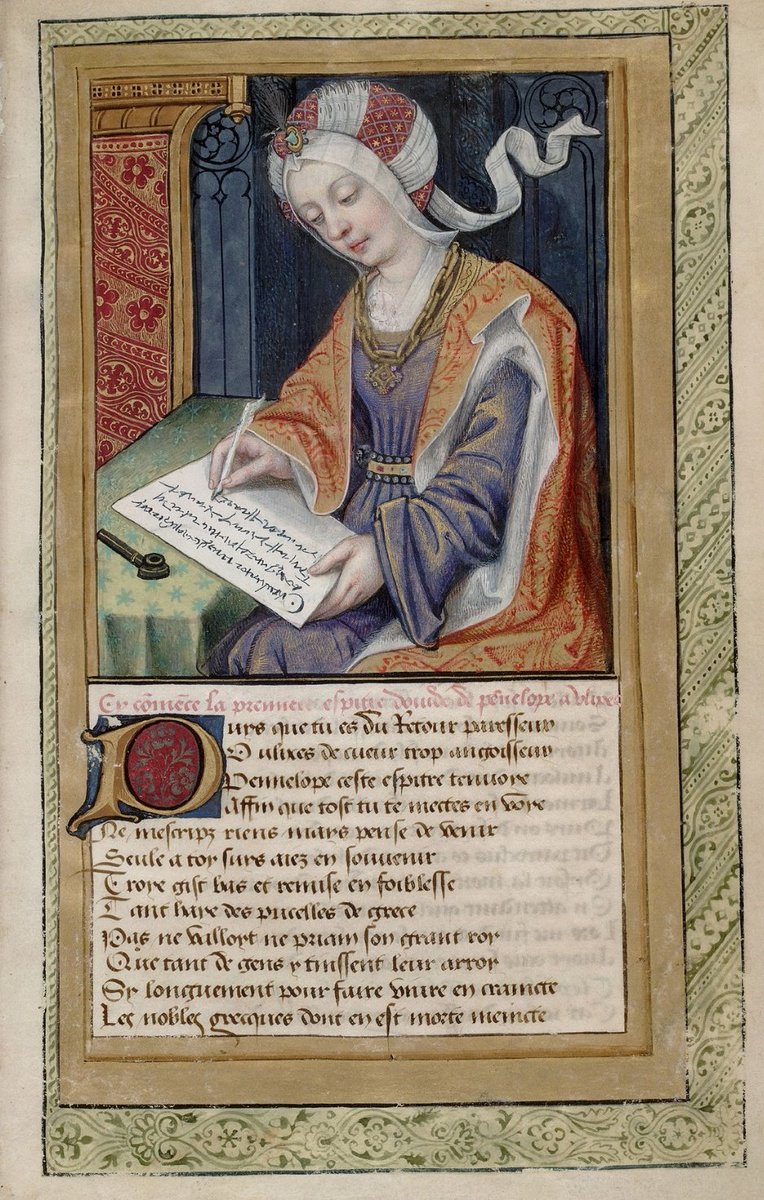 Cy cõmẽce la premiere espitre douide de penelope a vlixes
Puys que tu es du Retour paresseux
O ulixes de cueur trop angoisseux
Pennelope ceste espitre tenuoye
Affin que tost tu te mectes en voye
Ne mescripz riens mays pense de venir
Seule a toy suys aiez en souvenir
Troye gist bas et remise en foiblesse
Tant haye des pucelles de grece
Pas ne valloyt ne priam son grant roy
Que tant de gens y tinssent leur arroy
Sy longuement pour faire vivre en craincte
Les nobles grecques dont en est morte meincte